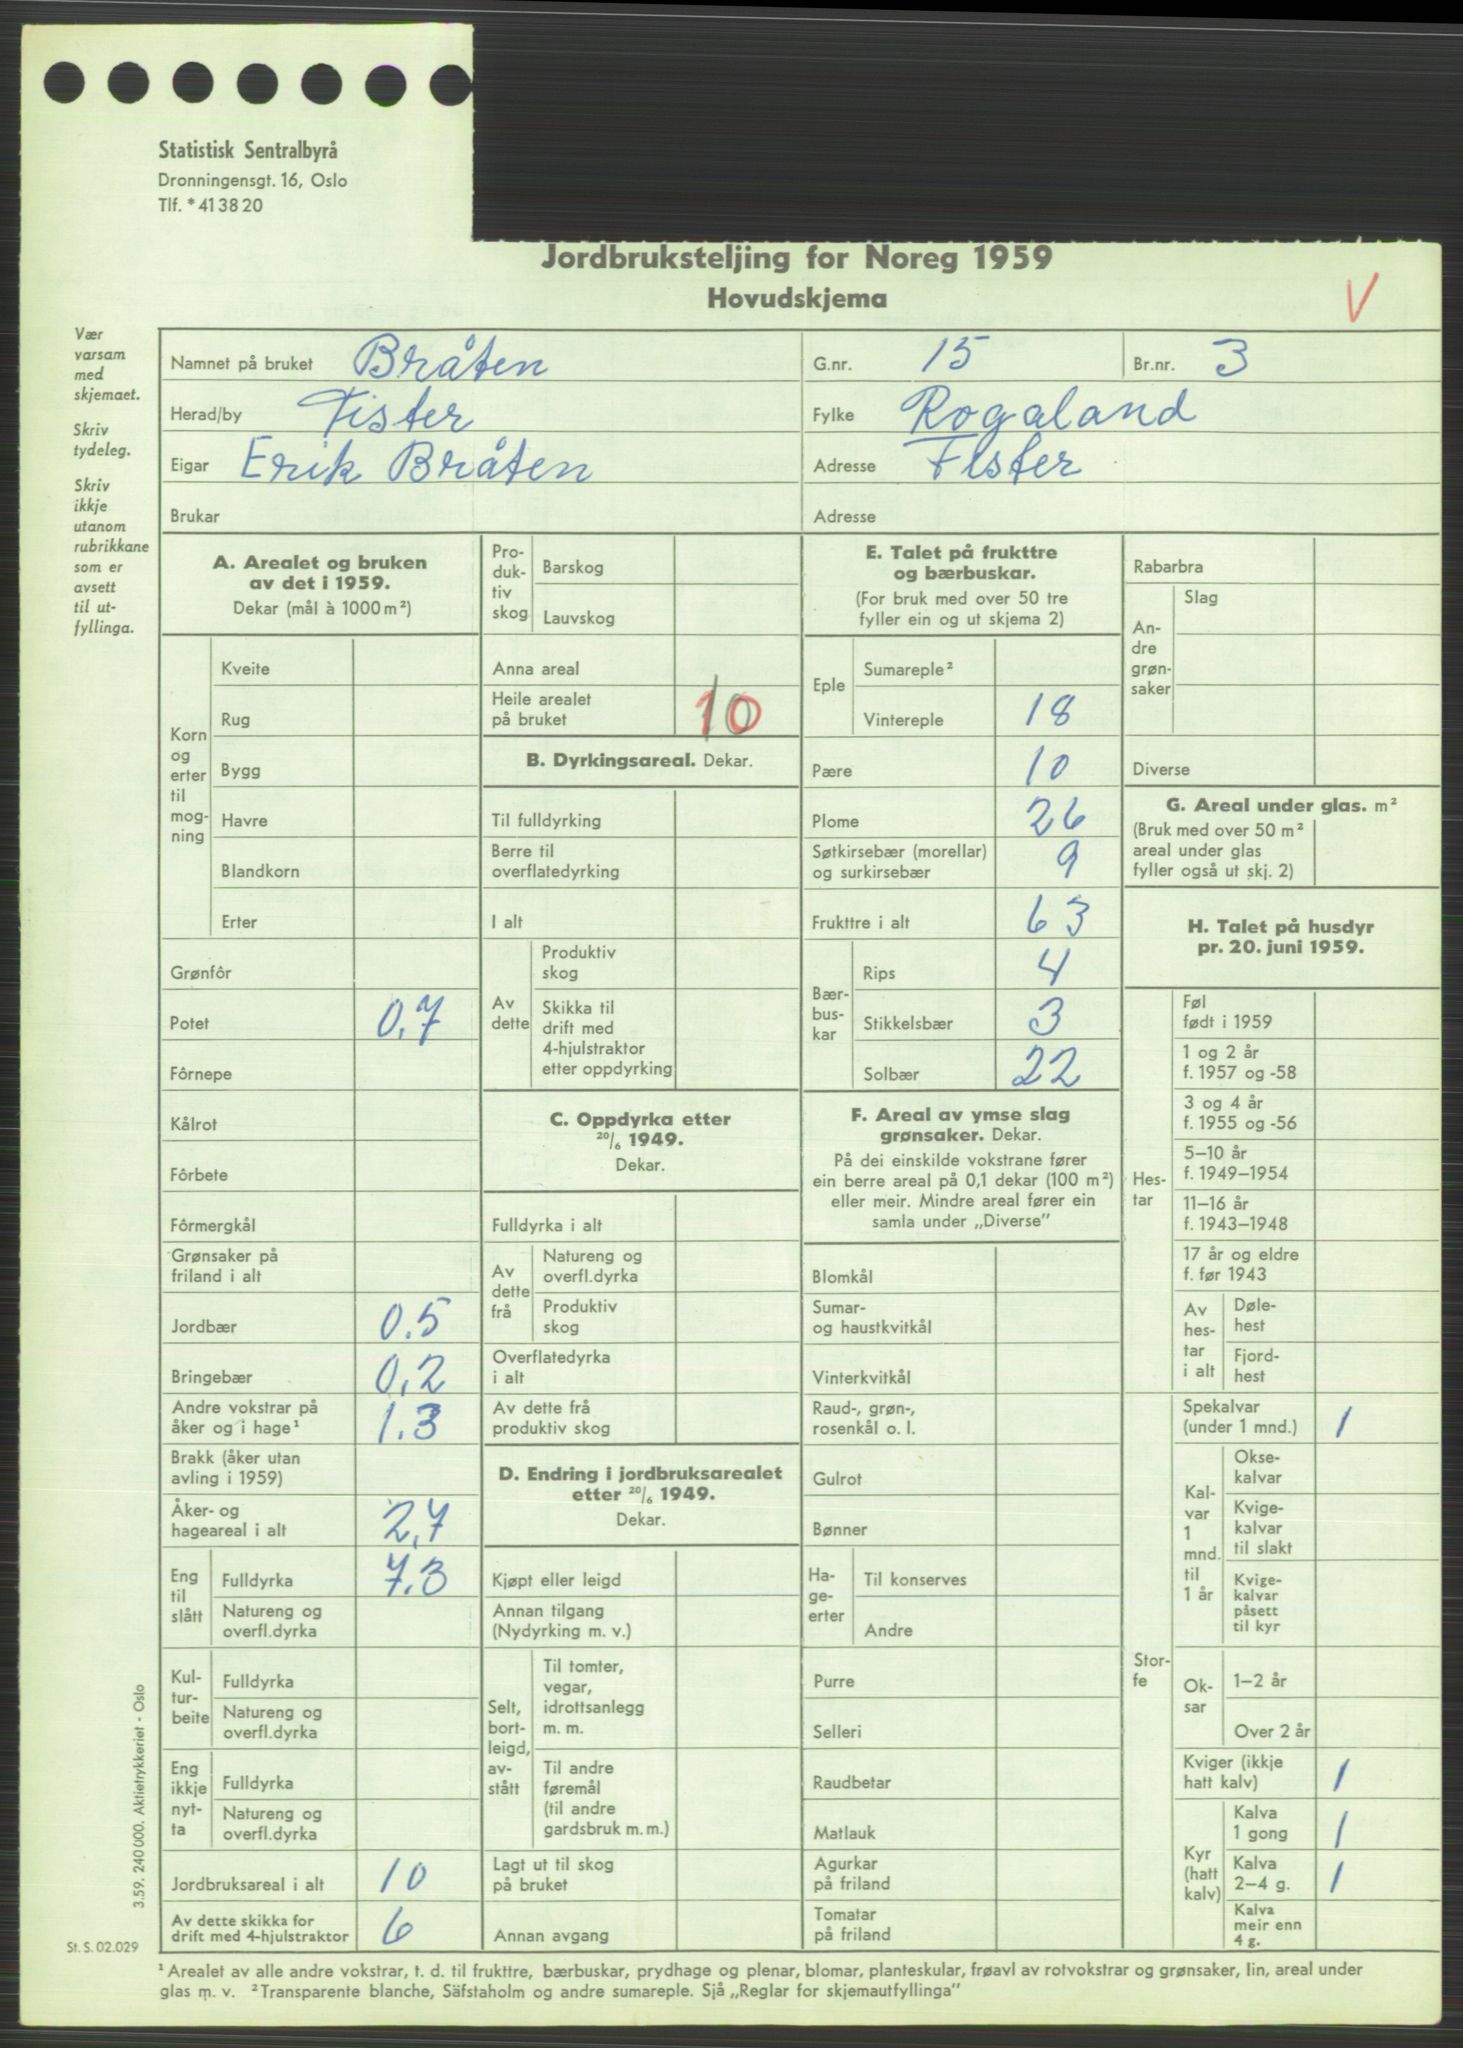 Statistisk Sentralbyrå
Dronningensgt. 16, Oslo
Tlf. * 41 38 20
Jordbruksteljing for Noreg 1959
Hovudskjema
V
Vær
varsam
med
skjemaet.
Skriv
tydeleg.
Skriv
ikkje
utanom
rubrikkane
som er
avsett
til ut-
fyllinga.
Namnet på bruket Bråten G.nr. 15 Br.nr. 3
Herad/by Fister Fylke Rogaland
Eigar Erik Bråten Adresse Fister
Brukar Adresse
A. Arealet og bruken
av det i 1959.
Dekar (mål à 1000 m²)
Korn
og
erter
til
mog-
ning
Kveite
Rug
Bygg
Havre
Blandkorn
Erter
Grønfôr
Potet 0,7
Fôrnepe
Kålrot
Fôrbete
Fôrmergkål
Grønsaker på
friland i alt
Jordbær 0.5
Bringebær 0,2
Andre vokstrar på
åker og i hage¹ 1.3
Brakk (åker utan
avling i 1959)
Åker- og
hageareal i alt 2,7
Eng
til
slått
Fulldyrka 7.3
Natureng og
overfl.dyrka
Kul-
tur-
beite
Fulldyrka
Natureng og
overfl.dyrka
Eng
ikkje
nyt-
ta
Fulldyrka
Natureng og
overfl.dyrka
Jordbruksareal i alt 10
Av dette skikka for
drift med 4-hjulstraktor 6
Pro-
duk-
tiv
skog
Barskog
Lauvskog
Anna areal
Heile arealet
på bruket 10
B. Dyrkingsareal. Dekar.
Til fulldyrking
Berre til
overflatedyrking
I alt
Av
dette
Produktiv
skog
Skikka til
drift med
4-hjulstraktor
etter oppdyrking
C. Oppdyrka etter
20/6 1949.
Dekar.
Fulldyrka i alt
Av
dette
frå
Natureng og
overfl.dyrka
Produktiv
skog
Overflatedyrka
i alt
Av dette frå
produktiv skog
D. Endring i jordbruksarealet
etter 20/6 1949.
Dekar.
Kjøpt eller leigd
Annan tilgang
(Nydyrking m. v.)
Selt,
bort-
leigd,
av-
stått
Til tomter,
vegar,
idrottsanlegg
m. m.
Til andre
føremål
(til andre
gardsbruk m. m.)
Lagt ut til skog
på bruket
Annan avgang
E. Talet på frukttre
og bærbuskar.
(For bruk med over 50 tre
fyller ein og ut skjema 2)
Eple
Sumareple²
Vintereple 18
Pære 10
Plome 26
Søtkirsebær (morellar)
og surkirsebær 9
Frukttre i alt 63
Bær-
bus-
kar
Rips 4
Stikkelsbær 3
Solbær 22
F. Areal av ymse slag
grønsaker. Dekar.
På dei einskilde vokstrane fører
ein berre areal på 0,1 dekar (100 m²)
eller meir. Mindre areal fører ein
samla under „Diverse”
Blomkål
Sumar-
og haustkvitkål
Vinterkvitkål
Raud-, grøn-,
rosenkål o. l.
Gulrot
Bønner
Ha-
ge-
erter
Til konserves
Andre
Purre
Selleri
Raudbetar
Matlauk
Agurkar
på friland
Tomatar
på friland
Rabarbra
An-
dre
grøn-
saker
Slag
Diverse
G. Areal under glas. m²
(Bruk med over 50 m²
areal under glas
fyller også ut skj. 2)
H. Talet på husdyr
pr. 20. juni 1959.
Hes-
tar
Føl
født i 1959
1 og 2 år
f. 1957 og -58
3 og 4 år
f. 1955 og -56
5–10 år
f. 1949–1954
11–16 år
f. 1943–1948
17 år og eldre
f. før 1943
Av
hes-
tar
i alt
Døle-
hest
Fjord-
hest
Stor-
fe
Spekalvar
(under 1 mnd.) 1
Kal-
var
1
mnd.
til
1 år
Okse-
kalvar
Kvige-
kalvar
til slakt
Kvige-
kalvar
påsett
til kyr
Ok-
sar
1–2 år
Over 2 år
Kviger (ikkje
hatt kalv) 1
Kyr
(hatt
kalv)
Kalva
1 gong 1
Kalva
2–4 g. 1
Kalva
meir enn
4 g.
3.59. 240 000. Aktietrykkeriet - Oslo
St. S. 02.029
¹ Arealet av alle andre vokstrar, t. d. til frukttre, bærbuskar, prydhage og plenar, blomar, planteskular, frøavl av rotvokstrar og grønsaker, lin, areal under
glas m. v. ² Transparente blanche, Säfstaholm og andre sumareple. Sjå „Reglar for skjemautfyllinga”